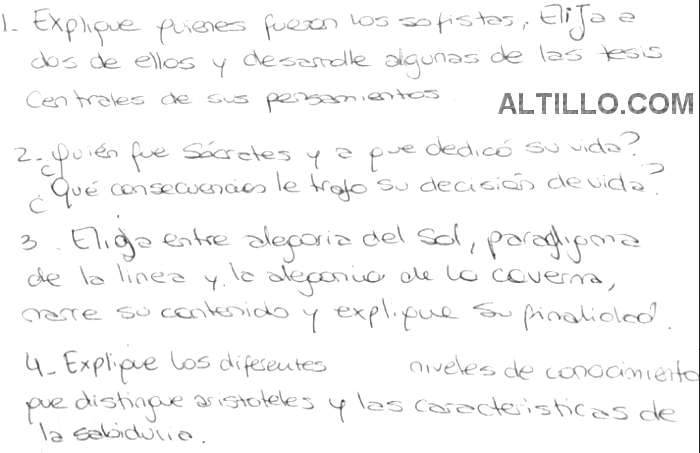 1. Explique quienes fueron los sofistas, Elija a
dos de ellos y desarrolle algunas de las tesis
Centrales de sus pensamientos.
ALTILLO.COM
2. ¿Quién fue Sócrates y a que dedicó su vida?
¿Qué consecuencias le trajo su decisión de vida?
3. Elija entre alegoria del Sol, paradigma
de la linea y la alegoria de la caverna,
narre su contenido y explique su finalidad.
4- Explique los diferentes niveles de conocimiento
que distingue aristoteles y las caracteristicas de
la sabiduria.